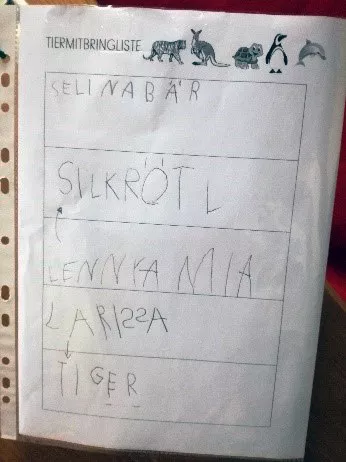 TIERMITBRINGLISTE
SELINA BÄR
SILKRÖT L
LENNYA MIA
LARISSA
TIGER